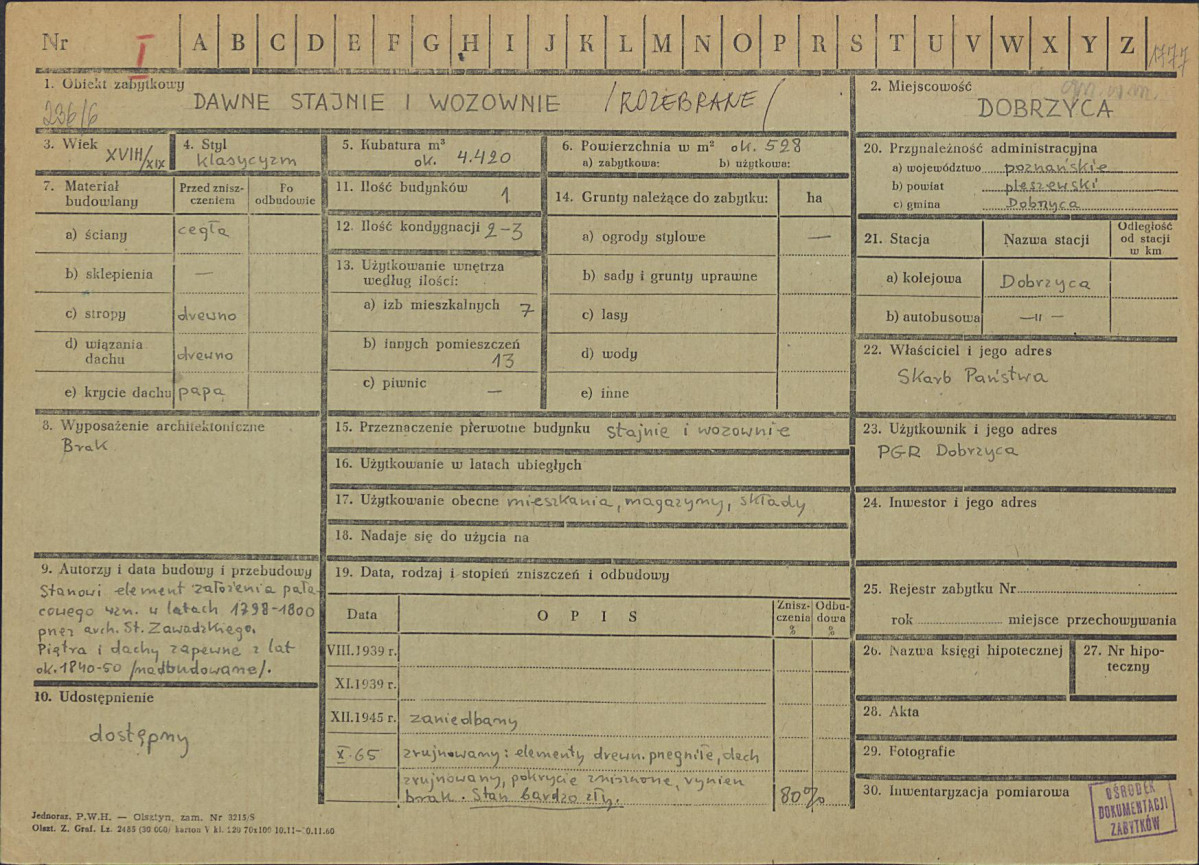 Nr I A B C D E F G H I J K L M N O P R S T U V W X Y Z 1777
1. Obiekt zabytkowy
236/6
DAWNE STAJNIE I WOZOWNIE /ROZEBRANE/
2. Miejscowość
DOBRZYCA
3. Wiek XVIII/XIX
4. Styl
klasycyzm
5. Kubatura m³
ok. 4.420
6. Powierzchnia w m² ok. 528
a) zabytkowa: b) użytkowa:
7. Materiał budowlany
Przed zniszczeniem
Po odbudowie
a) ściany cegła
b) sklepienia —
c) stropy drewno
d) wiązania dachu drewno
e) krycie dachu papa
8. Wyposażenie architektoniczne
Brak
9. Autorzy i data budowy i przebudowy
Stanowi element założenia pała-
cowego wzn. w latach 1798-1800
przez arch. St. Zawadzkiego.
Piętra i dachy zapewne z lat
ok. 1840-50 /nadbudowane/.
10. Udostępnienie
dostępny
11. Ilość budynków 1
12. Ilość kondygnacji 2-3
13. Użytkowanie wnętrza
według ilości:
a) izb mieszkalnych 7
b) innych pomieszczeń
13
c) piwnic —
14. Grunty należące do zabytku: ha
a) ogrody stylowe —
b) sady i grunty uprawne
c) lasy
d) wody
e) inne
15. Przeznaczenie pierwotne budynku stajnie i wozownie
16. Użytkowanie w latach ubiegłych
17. Użytkowanie obecne mieszkania, magazyny, składy
18. Nadaje się do użycia na
19. Data, rodzaj i stopień zniszczeń i odbudowy
Data OPIS Zniszczenia % Odbudowa %
VIII.1939 r.
XI.1939 r.
XII.1945 r. zaniedbany
X.65 zrujnowany: elementy drewn. przegniłe, dach
zrujnowany, pokrycie zniszczone, rynien
brak. Stan bardzo zły. 80%
20. Przynależność administracyjna
a) województwo poznańskie
b) powiat pleszewski
c) gmina Dobrzyca
21. Stacja Nazwa stacji Odległość od stacji w km
a) kolejowa Dobrzyca
b) autobusowa —"—
22. Właściciel i jego adres
Skarb Państwa
23. Użytkownik i jego adres
PGR Dobrzyca
24. Inwestor i jego adres
25. Rejestr zabytku Nr
rok miejsce przechowywania
26. Nazwa księgi hipotecznej
27. Nr hipoteczny
28. Akta
29. Fotografie
30. Inwentaryzacja pomiarowa
OŚRODEK
DOKUMENTACJI
ZABYTKÓW
Jednoraz. P.W.H. — Olsztyn, zam. Nr 3215/S
Olszt. Z. Graf. Lz. 2485 (30 000) karton V kl. 120 70x100 10.11—